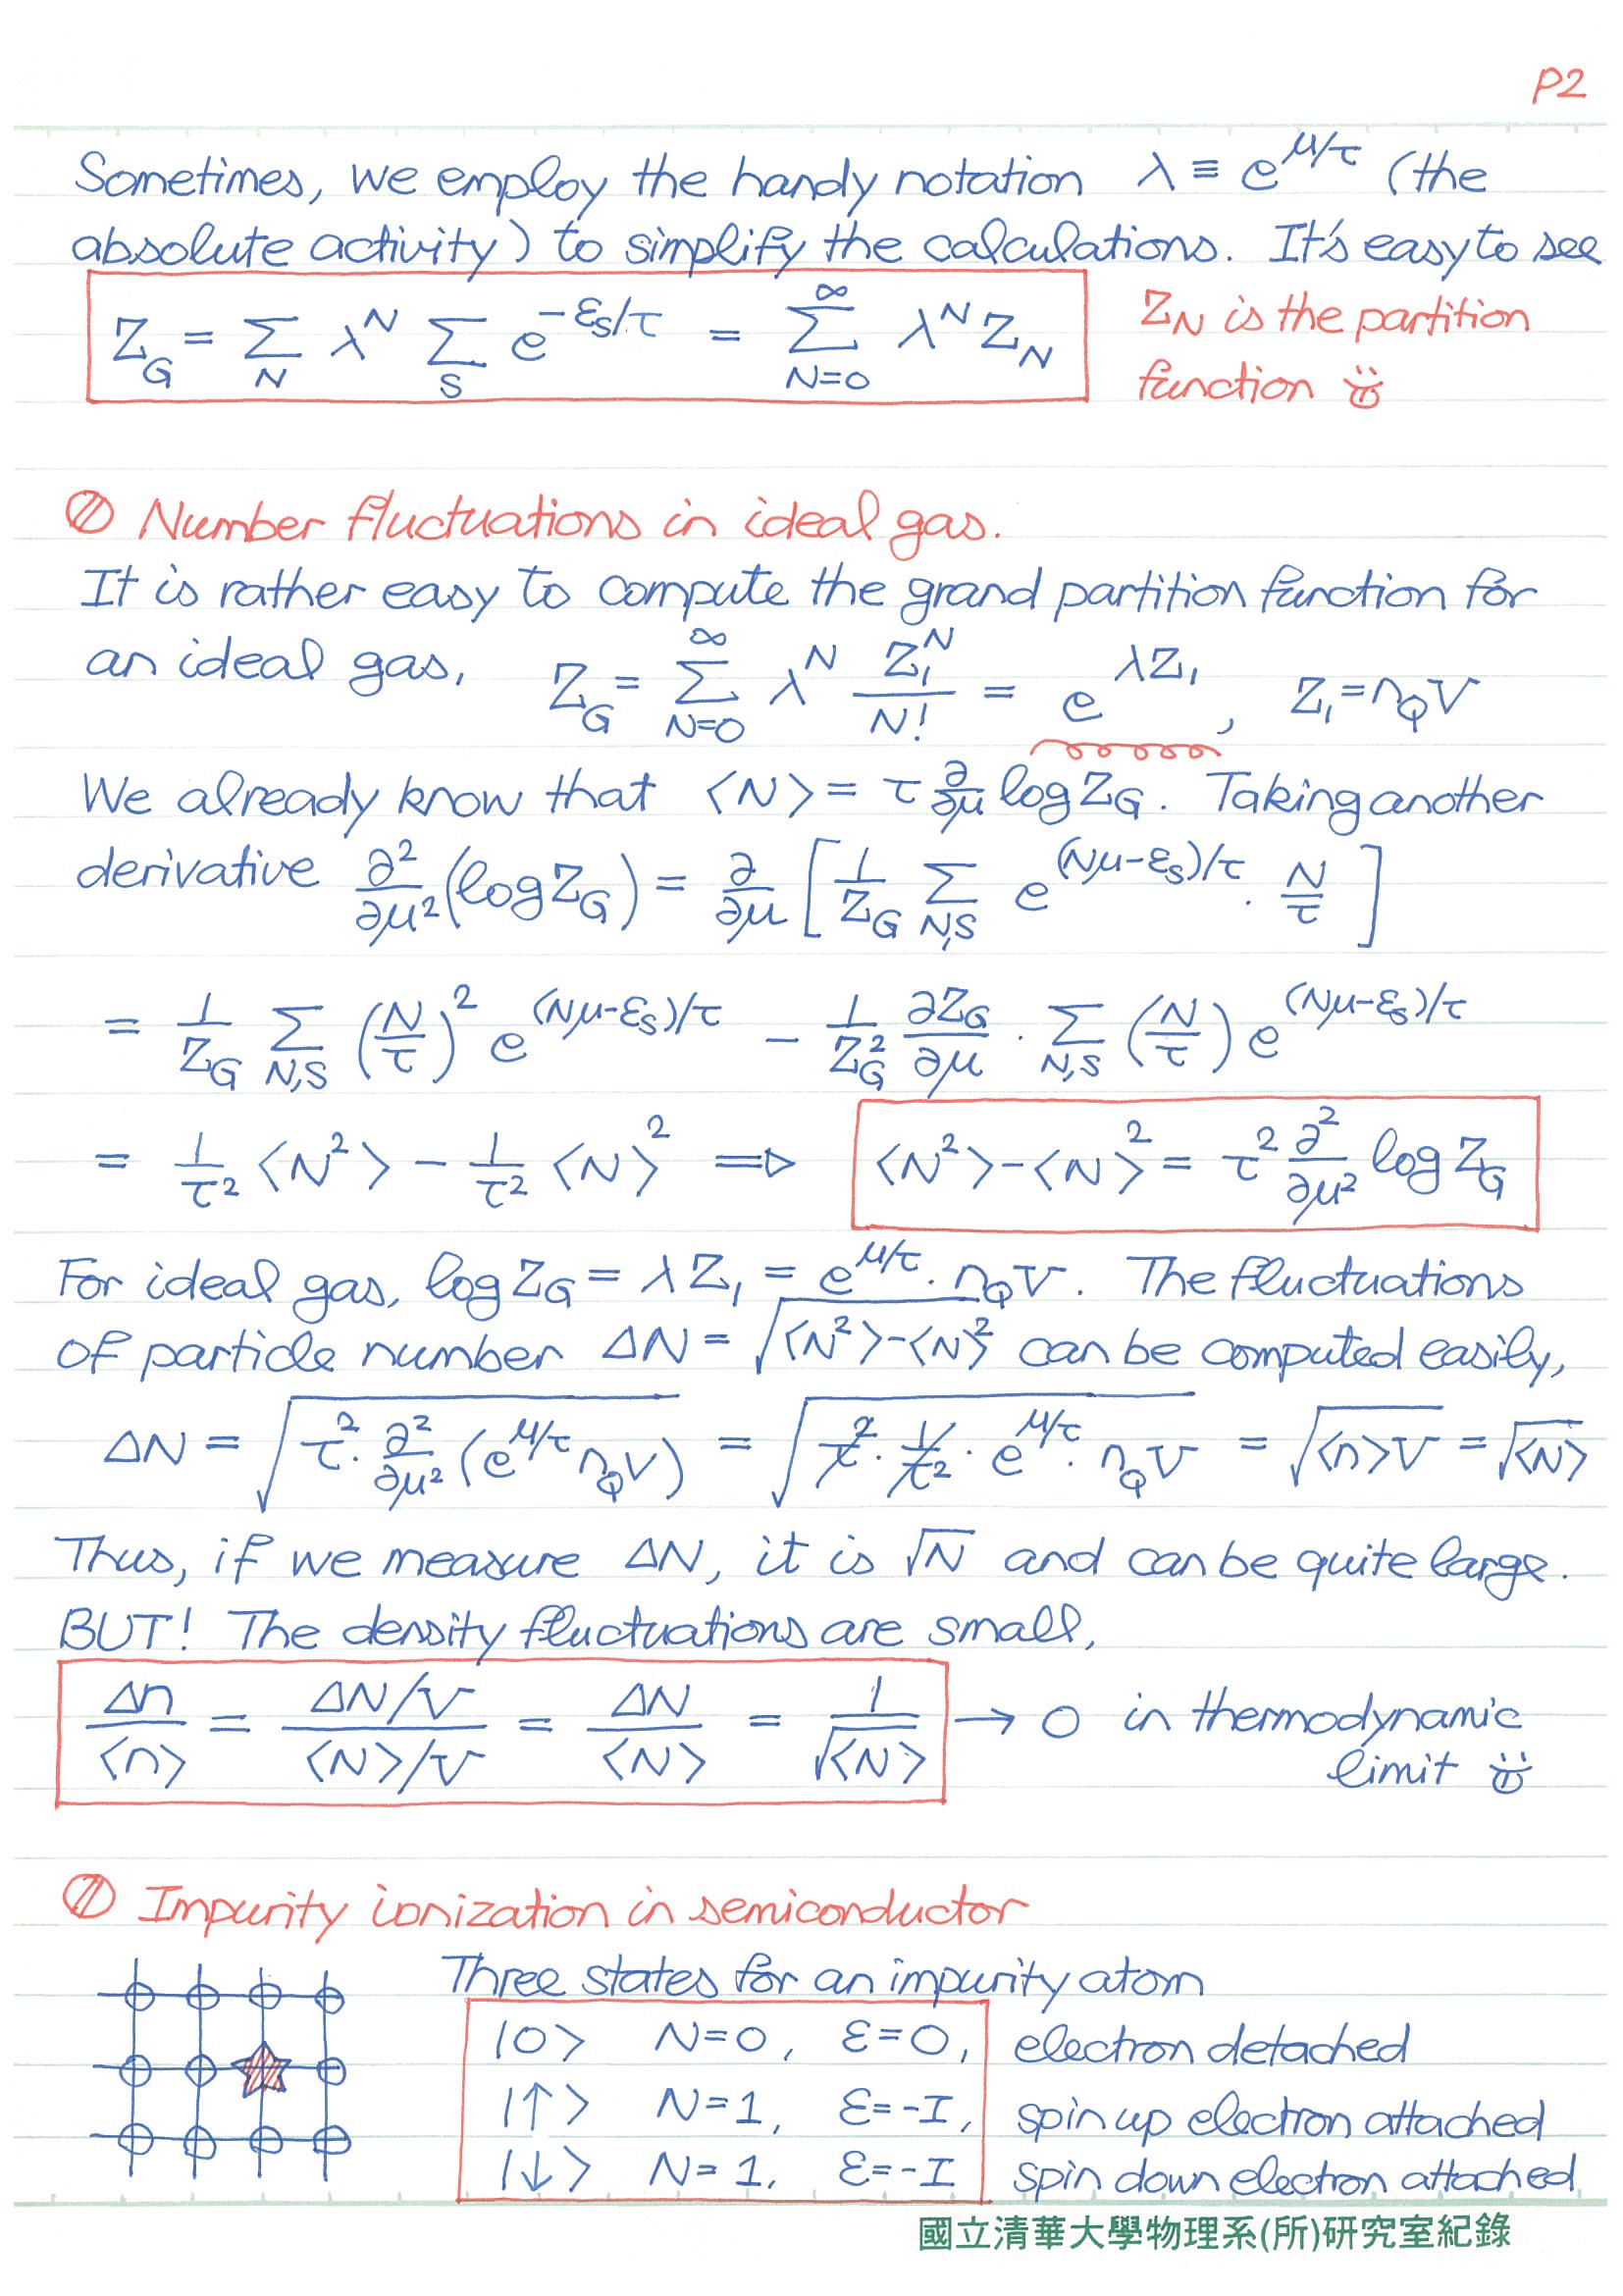 P2
Sometimes, we employ the handy notation λ ≡ e^{μ/τ} (the
absolute activity) to simplify the calculations. It's easy to see
Z_G = Σ_N λ^N Σ_S e^{-ε_S/τ} = Σ_{N=0}^∞ λ^N Z_N
Z_N is the partition
function
Number fluctuations in ideal gas.
It is rather easy to compute the grand partition function for
an ideal gas, Z_G = Σ_{N=0}^∞ λ^N Z_1^N/N! = e^{λZ_1}, Z_1 = n_Q V
We already know that ⟨N⟩ = τ ∂/∂μ log Z_G. Taking another
derivative ∂²/∂μ² (log Z_G) = ∂/∂μ [ 1/Z_G Σ_{N,S} e^{(Nμ-ε_S)/τ} · N/τ ]
= 1/Z_G Σ_{N,S} (N/τ)² e^{(Nμ-ε_S)/τ} - 1/Z_G² ∂Z_G/∂μ · Σ_{N,S} (N/τ) e^{(Nμ-ε_S)/τ}
= 1/τ² ⟨N²⟩ - 1/τ² ⟨N⟩² ⇒ ⟨N²⟩ - ⟨N⟩² = τ² ∂²/∂μ² log Z_G
For ideal gas, log Z_G = λ Z_1 = e^{μ/τ} · n_Q V. The fluctuations
of particle number ΔN = √(⟨N²⟩-⟨N⟩²) can be computed easily,
ΔN = √(τ² · ∂²/∂μ² (e^{μ/τ} n_Q V)) = √(τ² · 1/τ² · e^{μ/τ} · n_Q V) = √(⟨n⟩V) = √⟨N⟩
Thus, if we measure ΔN, it is √N and can be quite large.
BUT! The density fluctuations are small,
Δn/⟨n⟩ = (ΔN/V)/(⟨N⟩/V) = ΔN/⟨N⟩ = 1/√⟨N⟩ → 0 in thermodynamic
limit
Impurity ionization in semiconductor
Three states for an impurity atom
|0⟩ N=0, ε=0, electron detached
|↑⟩ N=1, ε=-I, spin up electron attached
|↓⟩ N=1, ε=-I spin down electron attached
國立清華大學物理系(所)研究室紀錄